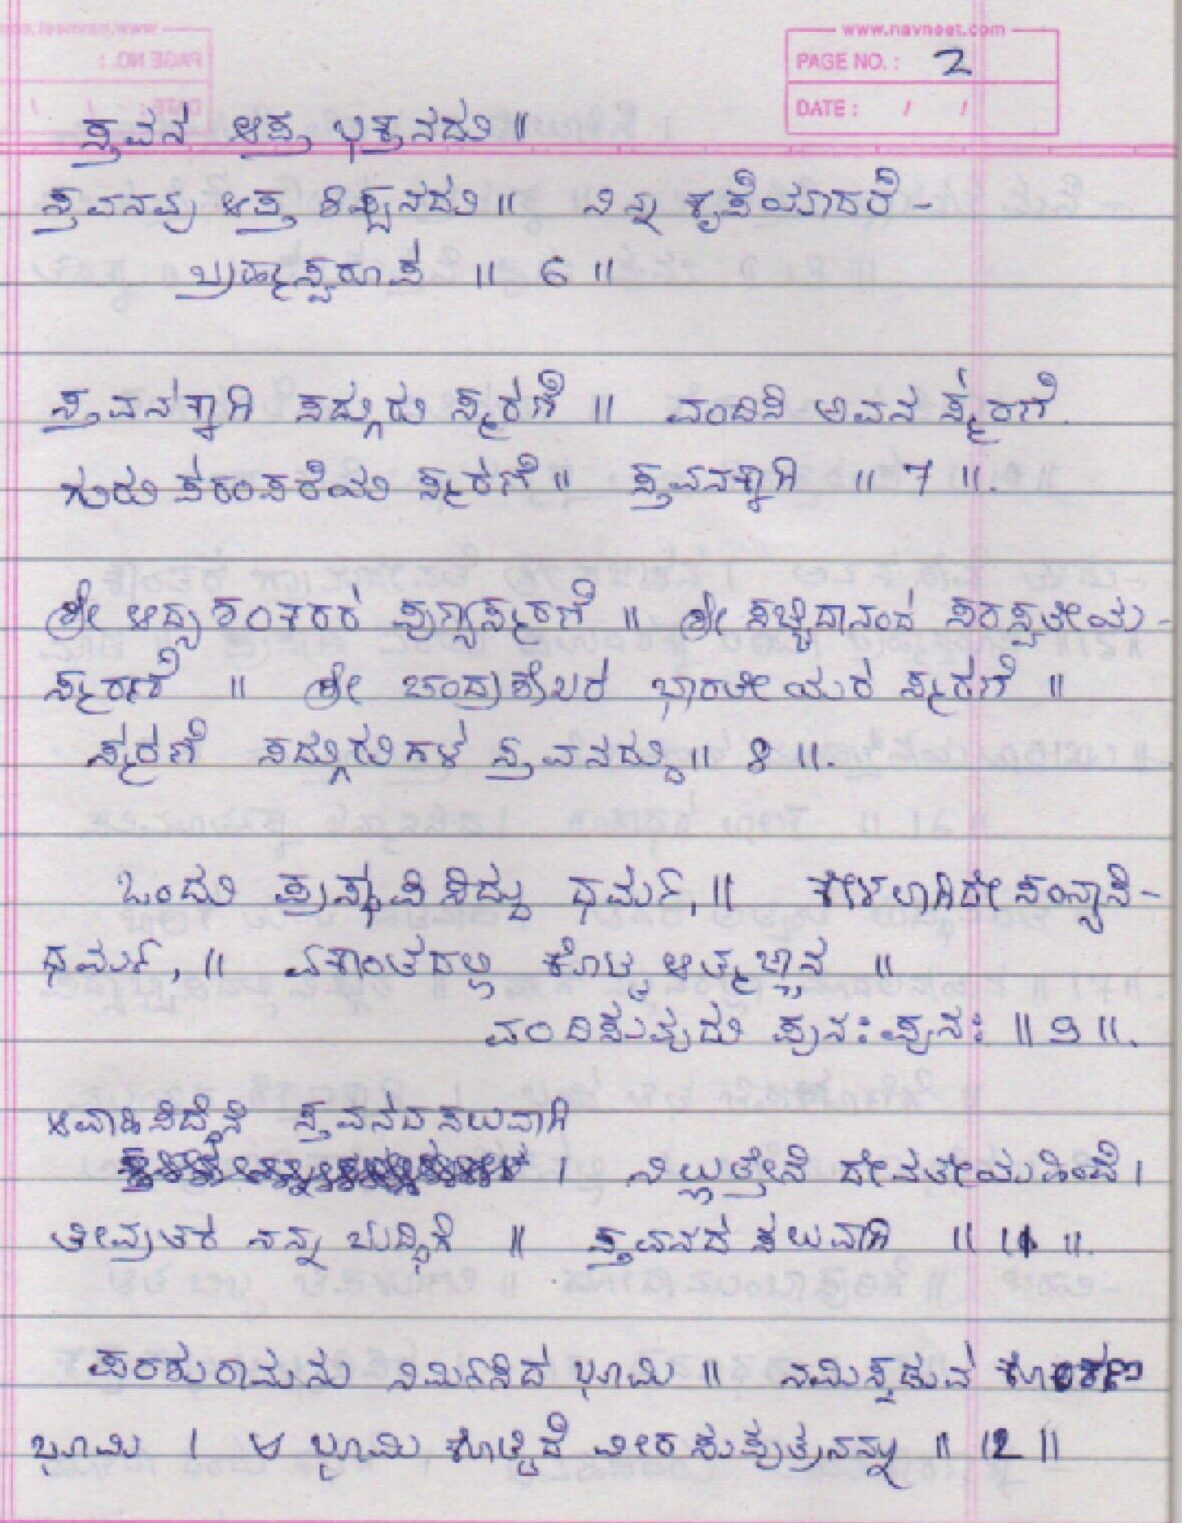 www.navneet.com
PAGE NO. : 2
DATE : / /
ಸ್ತವನ ಆಪ್ತ ಭಕ್ತನದು ॥
ಸ್ತವನವು ಆಪ್ತ ಶಿಷ್ಯನದು ॥ ನಿನ್ನ ಕೃಪೆಯಾದರೆ -
ಬ್ರಹ್ಮಸ್ವರೂಪ ॥ 6 ॥
ಸ್ತವನಕ್ಕಾಗಿ ಸದ್ಗುರು ಸ್ಮರಣೆ ॥ ವಂದಿಸಿ ಅವನ ಸ್ಮರಣೆ.
ಗುರು ಪರಂಪರೆಯ ಸ್ಮರಣೆ ॥ ಸ್ತವನಕ್ಕಾಗಿ ॥ 7 ॥.
ಶ್ರೀ ಆದ್ಯ ಶಂಕರರ ಪುಣ್ಯಸ್ಮರಣೆ ॥ ಶ್ರೀ ಸಚ್ಚಿದಾನಂದ ಸರಸ್ವತೀಯ -
ಸ್ಮರಣೆ ॥ ಶ್ರೀ ಚಂದ್ರಶೇಖರ ಭಾರತೀಯರ ಸ್ಮರಣೆ ॥
ಸ್ಮರಣೆ ಸದ್ಗುರುಗಳ ಸ್ತವನದ್ದು ॥ 8 ॥.
ಒಂದು ಪ್ರಸ್ಥಾಪಿಸಿದ್ದು ಧರ್ಮ, ॥ ಕೇಳಲಾಗಿದೇ ಸಂನ್ಯಾಸಿ -
ಧರ್ಮ, ॥ ಏಕಾಂತದಲ್ಲಿ ಕೊಟ್ಟ ಆತ್ಮಜ್ಞಾನ ॥
ವಂದಿಸುವುದು ಪುನಃ ಪುನಃ ॥ 9 ॥.
ಆವಾಹಿಸಿದ್ದೇನೆ ಸ್ತವನದ ಸಲುವಾಗಿ
। ನಿಲ್ಲುತ್ತೇನೆ ದೇವತೇಯ ಹಿಂದೆ ।
ತೀವ್ರತರ ನನ್ನ ಬುದ್ಧಿಗೆ ॥ ಸ್ತವನದ ಸಲುವಾಗಿ ॥ 11 ॥.
ಪರಶುರಾಮನು ನಿರ್ಮಿಸಿದ ಭೂಮಿ ॥ ನಮಿಸ್ಪಡುವ ಕೊಂಕಣ
ಭೂಮಿ । ಆ ಭೂಮಿ ಕೊಟ್ಟಿದೆ ವೀರ ಸುಪುತ್ರನನ್ನು ॥ 12 ॥